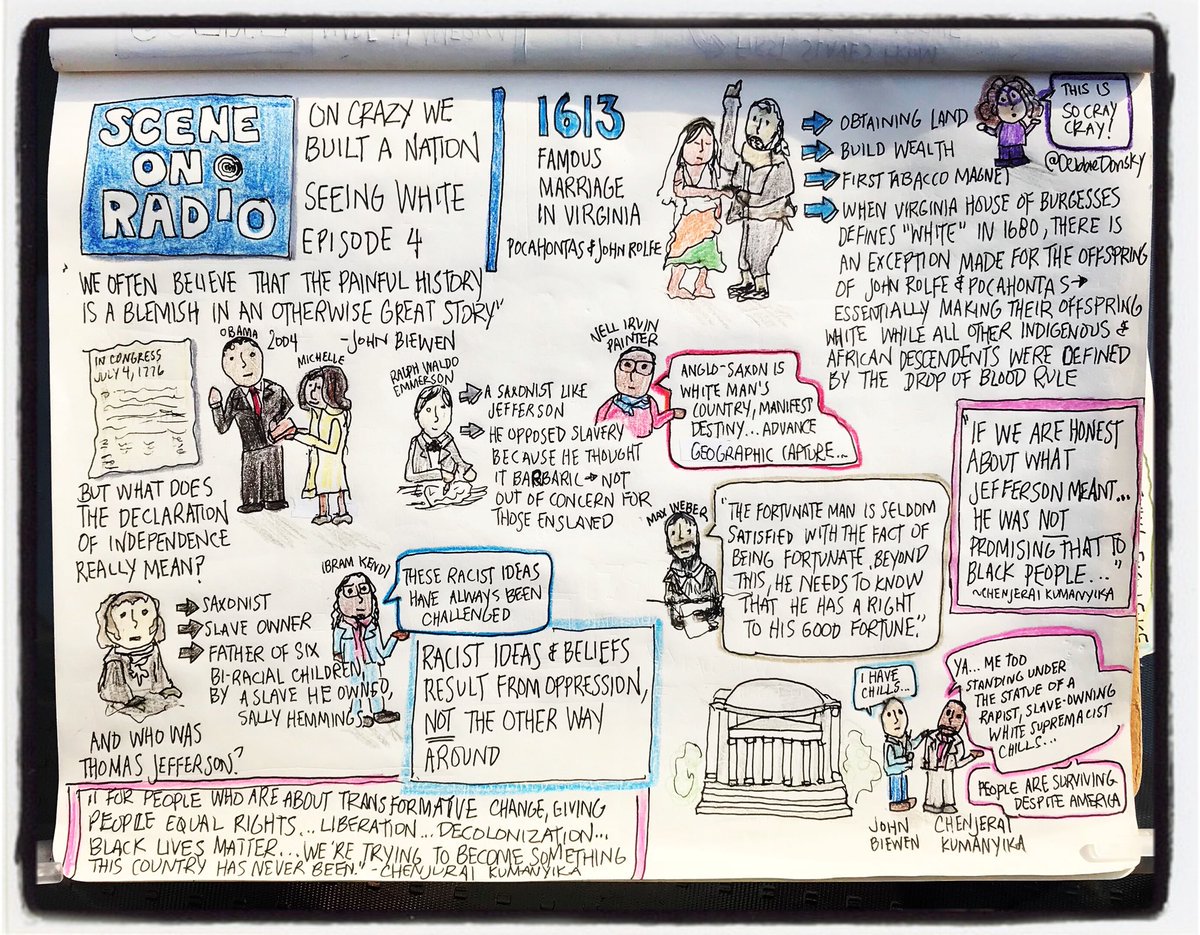 SCENE
ON
RADIO
ON CRAZY WE
BUILT A NATION
SEEING WHITE
EPISODE 4
1613
FAMOUS
MARRIAGE
IN VIRGINIA
POCAHONTAS & JOHN ROLFE
OBTAINING LAND
BUILD WEALTH
FIRST TABACCO MAGNET
WHEN VIRGINIA HOUSE OF BURGESSES
DEFINES "WHITE" IN 1680, THERE IS
AN EXCEPTION MADE FOR THE OFFSPRING
OF JOHN ROLFE & POCAHONTAS
ESSENTIALLY MAKING THEIR OFFSPRING
WHITE WHILE ALL OTHER INDIGENOUS &
AFRICAN DESCENDENTS WERE DEFINED
BY THE DROP OF BLOOD RULE
THIS IS
SO CRAY
CRAY!
@DebbieDonsky
"WE OFTEN BELIEVE THAT THE PAINFUL HISTORY
IS A BLEMISH IN AN OTHERWISE GREAT STORY"
-JOHN BIEWEN
IN CONGRESS
JULY 4, 1776
OBAMA
2004
MICHELLE
BUT WHAT DOES
THE DECLARATION
OF INDEPENDENCE
REALLY MEAN?
RALPH WALDO
EMMERSON
A SAXONIST LIKE
JEFFERSON
HE OPPOSED SLAVERY
BECAUSE HE THOUGHT
IT BARBARIC NOT
OUT OF CONCERN FOR
THOSE ENSLAVED
NELL IRVIN
PAINTER
ANGLO-SAXON IS
WHITE MAN'S
COUNTRY, MANIFEST
DESTINY... ADVANCE
GEOGRAPHIC CAPTURE...
"IF WE ARE HONEST
ABOUT WHAT
JEFFERSON MEANT...
HE WAS NOT
PROMISING THAT TO
BLACK PEOPLE..."
~CHENJERAI KUMANYIKA
MAX WEBER
"THE FORTUNATE MAN IS SELDOM
SATISFIED WITH THE FACT OF
BEING FORTUNATE. BEYOND
THIS, HE NEEDS TO KNOW
THAT HE HAS A RIGHT
TO HIS GOOD FORTUNE."
SAXONIST
SLAVE OWNER
FATHER OF SIX
BI-RACIAL CHILDREN
BY A SLAVE HE OWNED,
SALLY HEMMINGS
AND WHO WAS
THOMAS JEFFERSON?
IBRAM KENDI
THESE RACIST IDEAS
HAVE ALWAYS BEEN
CHALLENGED
RACIST IDEAS & BELIEFS
RESULT FROM OPPRESSION,
NOT THE OTHER WAY
AROUND
I HAVE
CHILLS...
YA... ME TOO
STANDING UNDER
THE STATUE OF A
RAPIST, SLAVE-OWNING
WHITE SUPREMACIST
CHILLS...
PEOPLE ARE SURVIVING
DESPITE AMERICA
JOHN
BIEWEN
CHENJERAI
KUMANYIKA
"FOR PEOPLE WHO ARE ABOUT TRANSFORMATIVE CHANGE, GIVING
PEOPLE EQUAL RIGHTS... LIBERATION... DECOLONIZATION...
BLACK LIVES MATTER... WE'RE TRYING TO BECOME SOMETHING
THIS COUNTRY HAS NEVER BEEN." -CHENJURAI KUMANYIKA